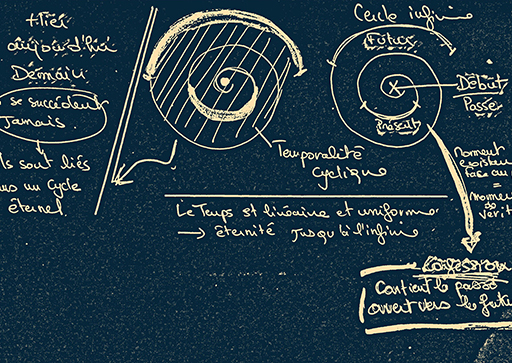 Hier
aujourd'hui
Demain
se succèdent
Jamais.
Ils sont liés
un cycle
éternel
Temporalité
cyclique
Cercle infini
Futur
Début
Passé
présent
Moment
=
moment
de
vérité
Le Temps st linéaire et uniforme
→ éternité jusqu'à l'infini
Confession
Contient le passé
ouvert vers le futur